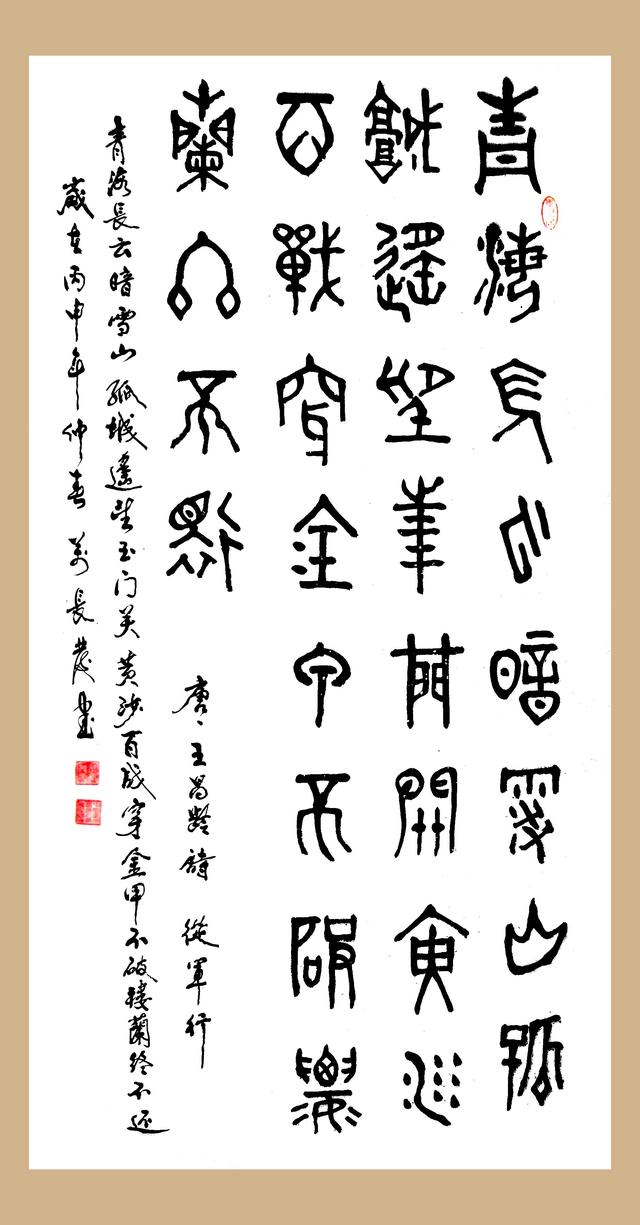 青海長雲暗雪山孤
城遥望玉門關黄沙
百戰穿金甲不破樓
蘭終不還
唐、王昌齡詩 從軍行
青海長云暗雪山孤城遥望玉门关黄沙百战穿金甲不破樓蘭终不还
歲在丙申年仲春 長書